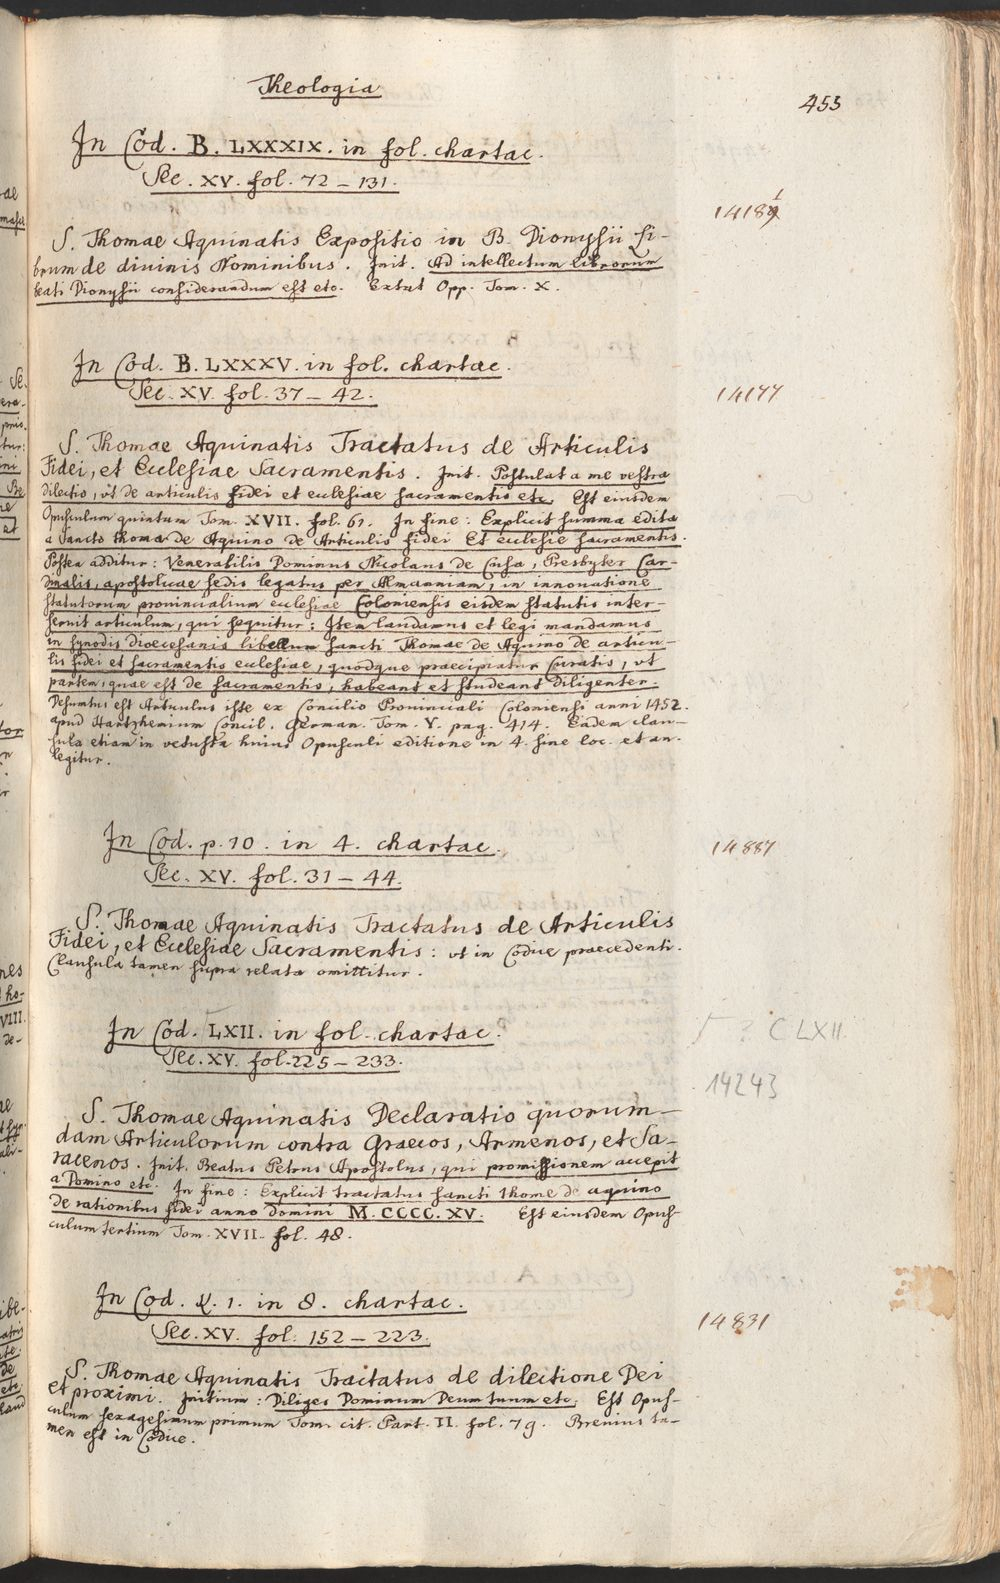 Theologia
453
In Cod. B. LXXXIX. in fol. chartac.
Sec. XV. fol. 72 – 131.
14189
1
S. Thomae Aquinatis Expositio in B. Dionysii Li-
brum de divinis Nominibus. Init. Ad intellectum librorum
beati Dionysii considerandum est etc. Extat Opp. Tom. X.
In Cod. B. LXXXV. in fol. chartac.
Sec. XV. fol. 37 – 42.
14177
S. Thomae Aquinatis Tractatus de Articulis
Fidei, et Ecclesiae Sacramentis. Init. Postulat a me vestra
dilectio, ut de articulis fidei et ecclesiae sacramentis etc. Est eiusdem
Opusculum quintum Tom. XVII. fol. 61. In fine: Explicit summa edita
a sancto thoma de Aquino de Articulis fidei Et ecclesie sacramentis.
Postea additur: Venerabilis Dominus Nicolaus de Cusa, Presbyter Car-
dinalis, apostolicae sedis legatus per Almanniam, in innovatione
statutorum provincialium ecclesiae Coloniensis eisdem statutis inter-
seruit articulum, qui sequitur: Item laudamus et legi mandamus
in synodis dioecesanis libellum sancti Thomae de Aquino de articu-
lis fidei et sacramentis ecclesiae, quodque praecipiatur Curatis, ut
partem, quae est de sacramentis, habeant et studeant diligenter.
Desumtus est Articulus iste ex Concilio Provinciali Coloniensi anni 1452.
apud Hartzhemium Concil. German. Tom. V. pag. 414. Eadem clau-
sula etiam in vetusta huius Opusculi editione in 4. sine loc. et an.
legitur.
In Cod. p. 10. in 4. chartac.
Sec. XV. fol. 31 – 44.
14887
S. Thomae Aquinatis Tractatus de Articulis
Fidei, et Ecclesiae Sacramentis: ut in Codice praecedenti.
Clausula tamen supra relata omittitur.
In Cod. LXII. in fol. chartac.
Sec. XV. fol. 225 – 233.
? C LXII.
14243
S. Thomae Aquinatis Declaratio quorum-
dam Articulorum contra Graecos, Armenos, et Sa-
racenos. Init. Beatus Petrus Apostolus, qui promissionem accepit
a Domino etc. In fine: Explicit tractatus sancti thome de aquino
de rationibus fidei anno domini M. CCCC. XV. Est eiusdem Opus-
culum tertium Tom. XVII. fol. 48.
In Cod. q. 1. in 8. chartac.
Sec. XV. fol: 152 – 223.
14831
S. Thomae Aquinatis Tractatus de dilectione Dei
et proximi. Initium: Diliges Dominum Deum tuum etc. Est Opus-
culum sexagesimum primum Tom. cit. Part. II. fol. 79. Brevius ta-
men est in Codice.